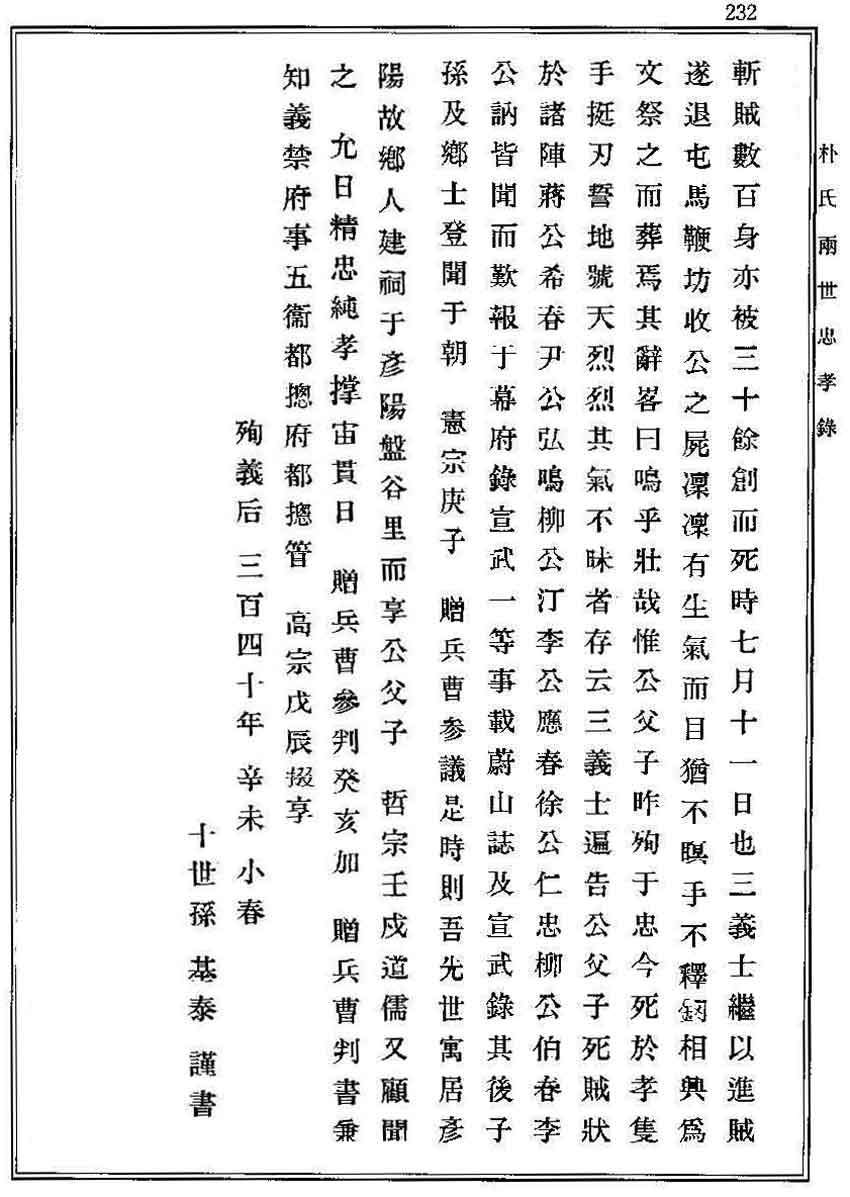 232
朴氏兩世忠孝錄
斬賊數百身亦被三十餘創而死時七月十一日也三義士繼以進賊
遂退屯馬鞭坊收公之屍凜凜有生氣而目猶不瞑手不釋劍相與爲
文祭之而葬焉其辭畧曰嗚乎壯哉惟公父子昨殉于忠今死於孝隻
手挺刃誓地號天烈烈其氣不昧者存云三義士遍告公父子死賊狀
於諸陣蔣公希春尹公弘鳴柳公汀李公應春徐公仁忠柳公伯春李
公訥皆聞而歎報于幕府錄宣武一等事載蔚山誌及宣武錄其後子
孫及鄕士登聞于朝 憲宗庚子 贈兵曹參議是時則吾先世寓居彥
陽故鄕人建祠于彥陽盤谷里而享公父子 哲宗壬戌道儒又顧聞
之 允日精忠純孝撑宙貫日 贈兵曹參判癸亥加 贈兵曹判書兼
知義禁府事五衞都摠府都摠管 高宗戊辰掇享
殉義后 三百四十年 辛未 小春
十世孫 基泰 謹書